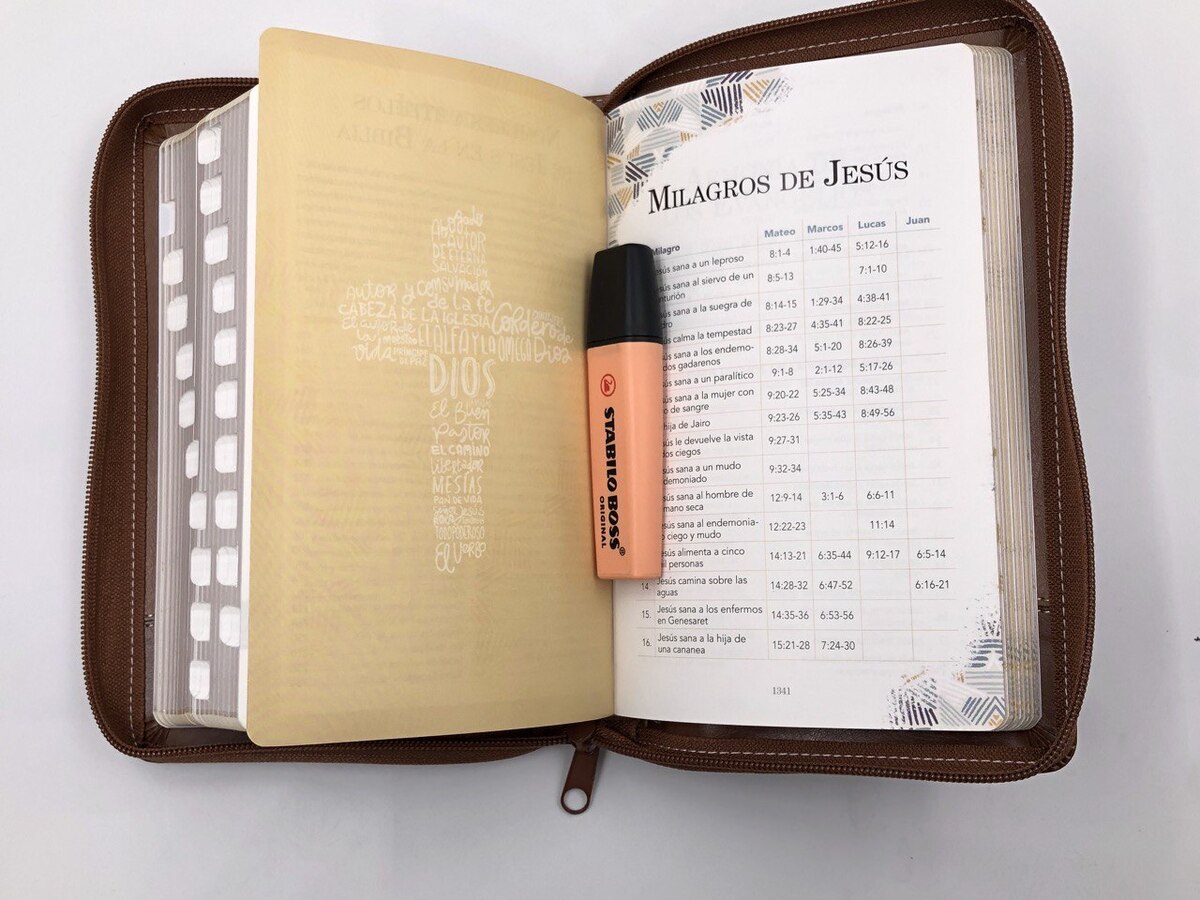 Abogado
AUTOR
DE ETERNA
SALVACIÓN
Autor y Consumador
de la fe
CABEZA DE LA IGLESIA
Cordero de
Dios
El autor de
la
vida
PRÍNCIPE
DE PAZ
EL ALFA Y LA OMEGA
DIOS
El Buen
Pastor
EL CAMINO
libertador
MESÍAS
PAN DE VIDA
TODOPODEROSO
El Verbo
STABILO BOSS®
ORIGINAL
MILAGROS DE JESÚS
Milagro Mateo Marcos Lucas Juan
sús sana a un leproso 8:1-4 1:40-45 5:12-16
sús sana al siervo de un
nturión 8:5-13 7:1-10
sús sana a la suegra de
dro 8:14-15 1:29-34 4:38-41
sús calma la tempestad 8:23-27 4:35-41 8:22-25
sús sana a los endemo-
dos gadarenos 8:28-34 5:1-20 8:26-39
sús sana a un paralítico 9:1-8 2:1-12 5:17-26
sús sana a la mujer con
o de sangre 9:20-22 5:25-34 8:43-48
hija de Jairo 9:23-26 5:35-43 8:49-56
sús le devuelve la vista
dos ciegos 9:27-31
sús sana a un mudo
demoniado 9:32-34
sús sana al hombre de
mano seca 12:9-14 3:1-6 6:6-11
sús sana al endemonia-
o ciego y mudo 12:22-23 11:14
esús alimenta a cinco
il personas 14:13-21 6:35-44 9:12-17 6:5-14
14. Jesús camina sobre las
aguas 14:28-32 6:47-52 6:16-21
15. Jesús sana a los enfermos
en Genesaret 14:35-36 6:53-56
16. Jesús sana a la hija de
una cananea 15:21-28 7:24-30
1341